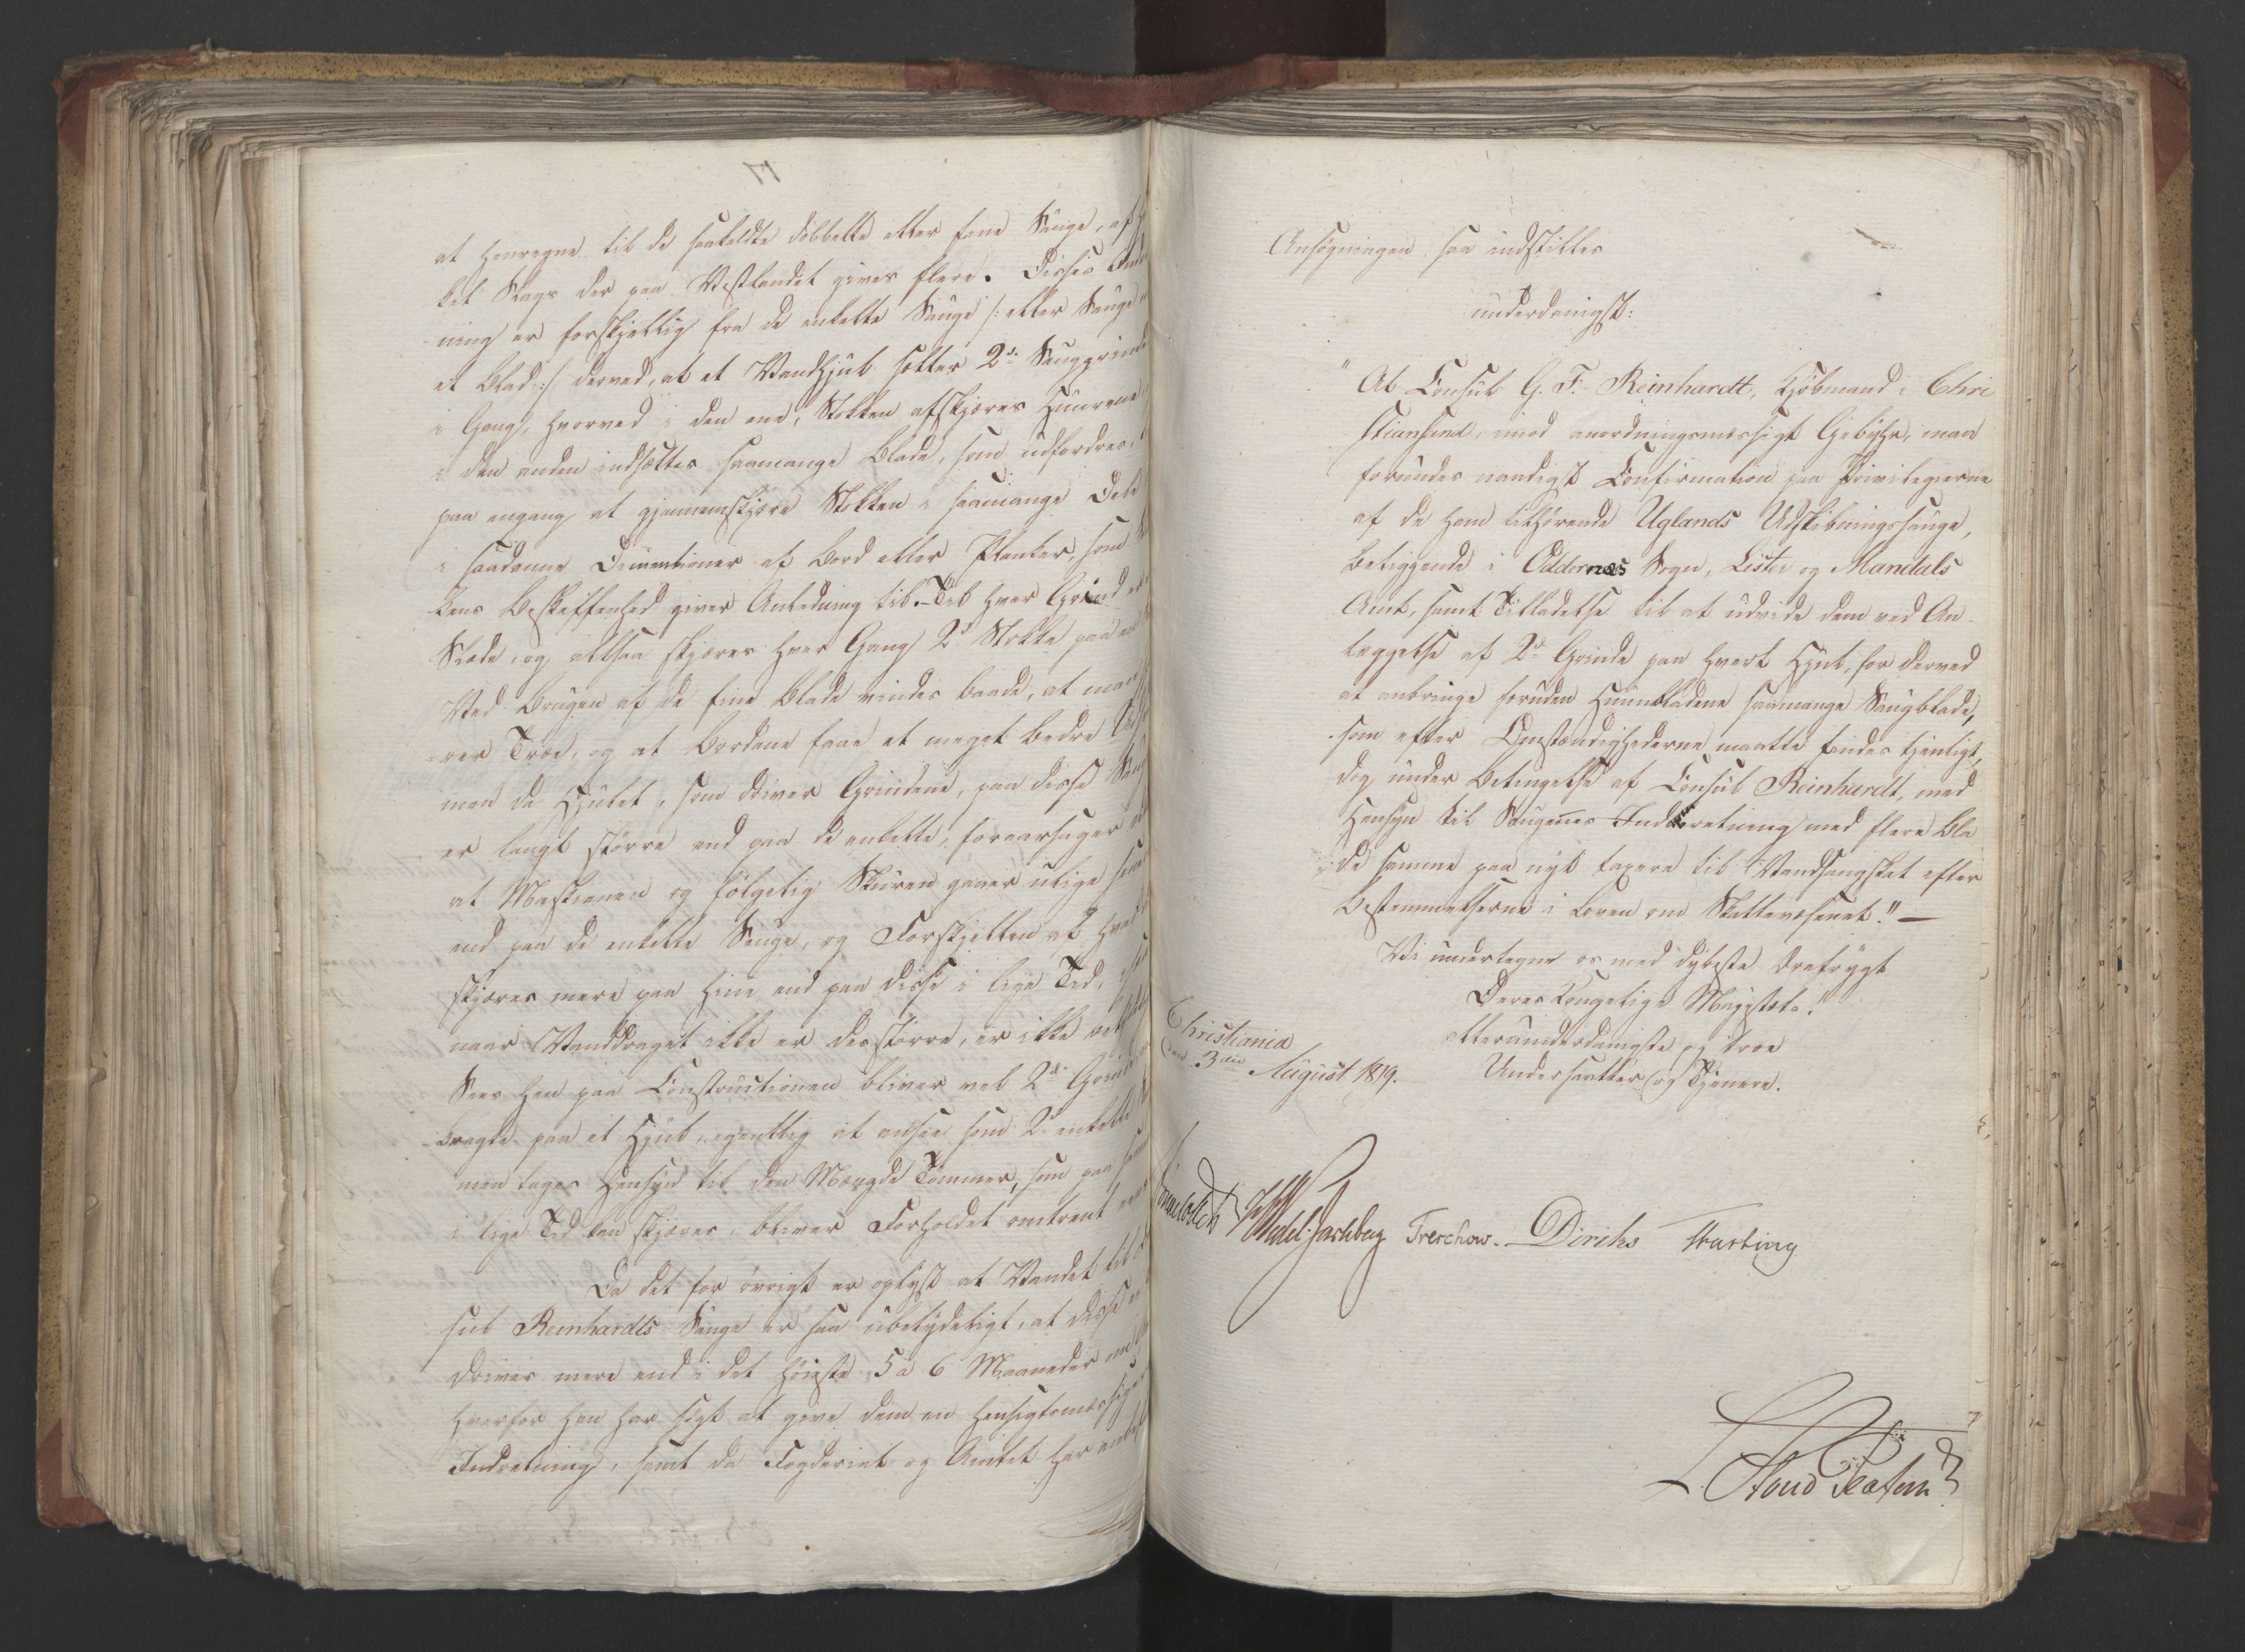 at henregne til de saakaldte dobbelte eller fine Sauge, af
det Slags der paa Vestlandet gives flere. Disses
ning er forskjellig fra de enkelte Sauge /: eller Sauge
et Blad :/ derved, at et Vandhjul sætter 2de Sauggrinde
i Gang, hvorved i den ene, Stokken afskjæres Hunrene
i den anden indsættes saamange Blade, som udfordres,
paa engang at gjennemskjære Stokken i saamange Dele
i saadanne Dimentioner af Bord eller Planker, som
kens Beskaffenhed giver Anledning til. Til hver Grind er
Slæde, og altsaa skjæres hver Gang 2de Stokke paa en
Ved Brugen af de fine Blade vindes baade, at man
rer Træe, og at Bordene faae et meget bedre
men da Hjulet, som driver Grindene, paa disse Sauge
er langt større end paa de enkelte, foraarsager
at Maskinen og følgelig Skuren gaaer ulige
end paa de enkelte Sauge, og Forskjellen af hvad
skjæres mere paa hine end paa disse i lige Tid,
naar Vanddraget ikke er des større, er ikke
Sees hen paa Constructionen bliver vel 2de Grinde
bragte paa et Hjul, egentlig at ansee som 2 enkelte
men tages Hensyn til den Mængde Tømmer, som paa
i lige Tid kan skjæres, bliver Forholdet omtrent
Da det for øvrigt er oplyst at Vandet til
sul Reinhardts Sauge er saa ubetydeligt, at disse
drives mere end i det høieste 5 a 6 Maaneder
hvorfor han har søgt at give dem en hensigtsmæssig
Indretning, samt da Fogderiet og Amtet har
Ansøgningen saa indstilles
underdanigst:
"At Consul G. F. Reinhardt, Kjøbmand i Chri
stiansand, imod anordningsmæssigt Gebyhr, maa
forundes naadigst Confirmation paa Privilegierne
af de ham tilhørende Uglands Udskibningssauge,
beliggende i Oddernæs Sogn, Lister og Mandals
Amt, samt Tilladelse til at udvide dem ved An-
læggelse af 2de Grinde paa hvert Hjul, for derved
at anbringe foruden Hunbladene saamange Saugblade,
som efter Omstændighederne maatte findes tjenligt,
dog under Betingelse af Consul Reinhardt, med
Hensyn til Saugenes Indretning med flere Bla
de samme paa nyt taxere til Vandfangsskat efter
Bestemmelserne i Loven om Skattevæsenet." —
Vi undertegne os med dybeste Ærefrygt
Deres Kongelige Majestæts!
allerunderdanigste og troe
Undersaatter og Tjenere.
Christiania
den 3die August 1819.
Wedel-Jarlsberg Treschow. Diriks Krebting